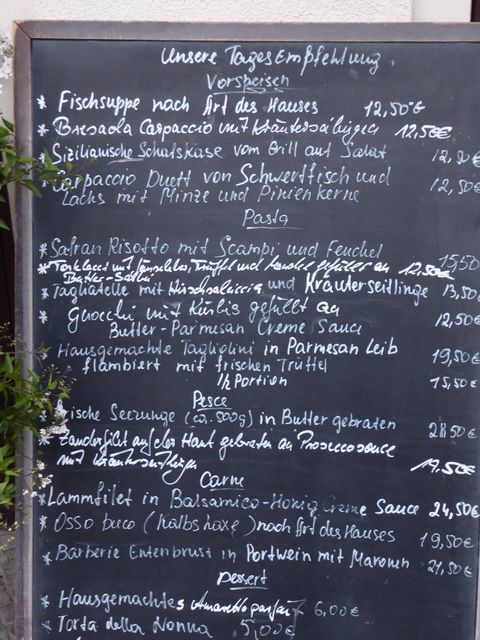 Unsere TagesEmpfehlung.
Vorspeisen
* Fischsuppe nach Art des Hauses 12,50€
* Bresaola Carpaccio mit Kräutersaitlingen 12,50€
* Sizilianische Schafskäse vom Grill auf Salat 12,50€
* Carpaccio Duett von Schwertfisch und 12,50€
Lachs mit Minze und Pinienkerne
Pasta
* Safran Risotto mit Scampi und Fenchel 15,50
* mit Trüffel und gefüllt an 12,50€
Butter-Salbei
* Tagliatelle mit Hirschsalsiccia und Kräuterseitlinge 13,50€
* Gnocchi mit Kürbis gefüllt an 12,50€
Butter-Parmesan Creme Sauce
* Hausgemachte Tagliolini in Parmesan Leib 19,50€
flambiert mit frischen Trüffel
1/2 Portion 15,50€
Pesce
ische Seezunge (ca. 500g) in Butter gebraten 28,50€
* Zanderfilet auf der Haut gebraten an Proseccosauce
mit Kräuterseitlingen 19,50€
Carne
* Lammfilet in Balsamico-Honig Creme Sauce 24,50€
* Osso buco (Kalbshaxe) nach Art des Hauses 19,50€
* Barberie Entenbrust in Portwein mit Maronen 21,50€
Dessert
* Hausgemachtes Amarettoparfait 6,00€
* Torta della Nonna 5,00€